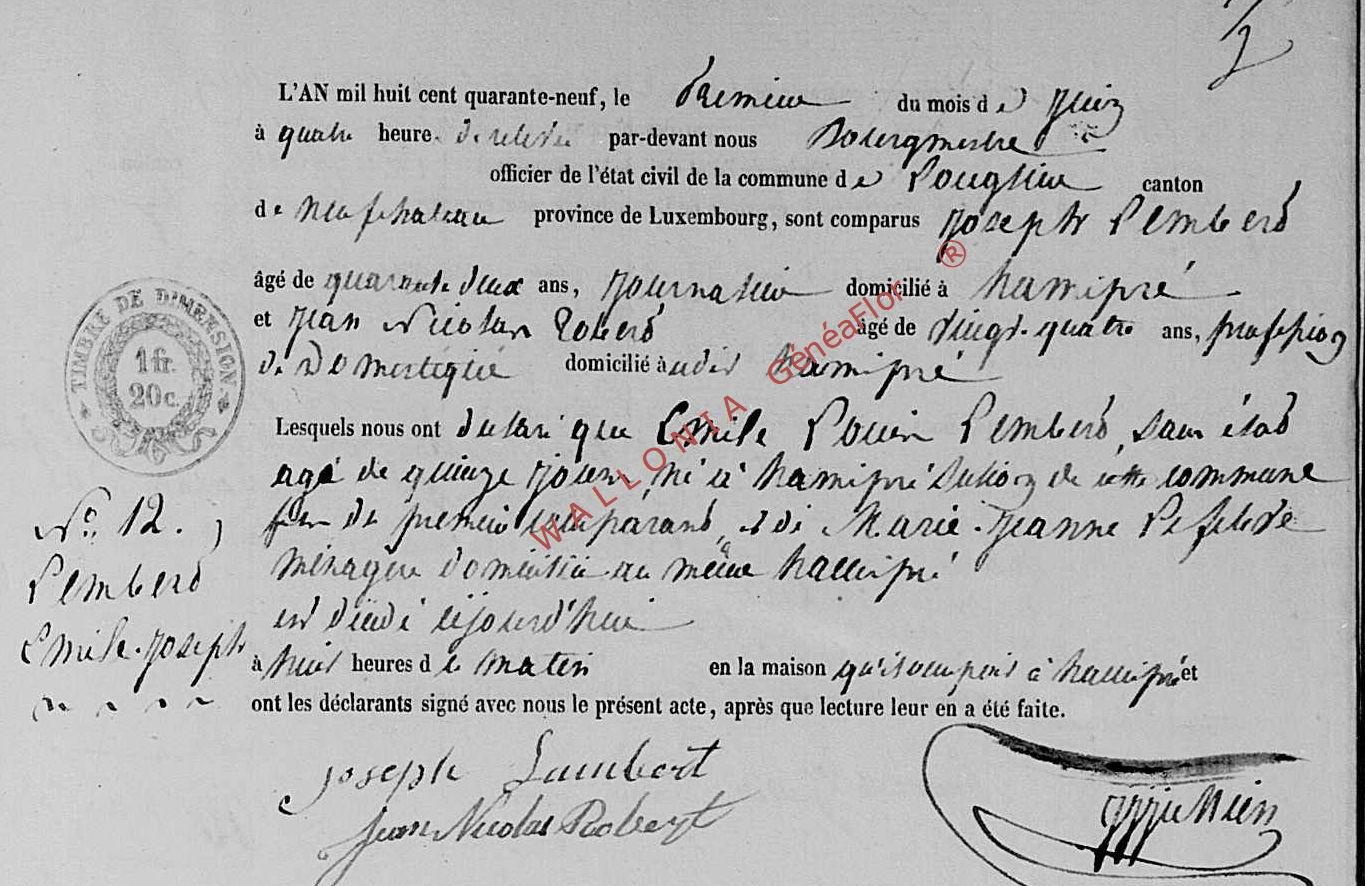 1/2
L'AN mil huit cent quarante-neuf, le Premier du mois de Juin
à quatre heure de relevée par-devant nous Bourgmestre
officier de l'état civil de la commune de Longlier canton
de Neufchateau province de Luxembourg, sont comparus Joseph Lembert
âgé de quarante deux ans, Journalier domicilié à hamipré
et Jean Nicolas Robert âgé de vingt-quatre ans, profession
de Domestique domicilié à udit hamipré
TIMBRE DE DIMENSION
1 fr.
20 c.
Lesquels nous ont déclaré que Emile Louin Lembert, sans état
agé de quinze jours, né à hamipré section de cette commune
fils du premier comparant, et de Marie-Jeanne Lefebvre
ménagère domiciliée au même hamipré
est décédé cejourd'hui
à huit heures de matin en la maison qu'ils occupent à hamipré et
ont les déclarants signé avec nous le présent acte, après que lecture leur en a été faite.
No. 12.
Lembert
Emile-Joseph
Joseph Lambert
Jean Nicolas Robert
WALLONIA GénéaFlor ®